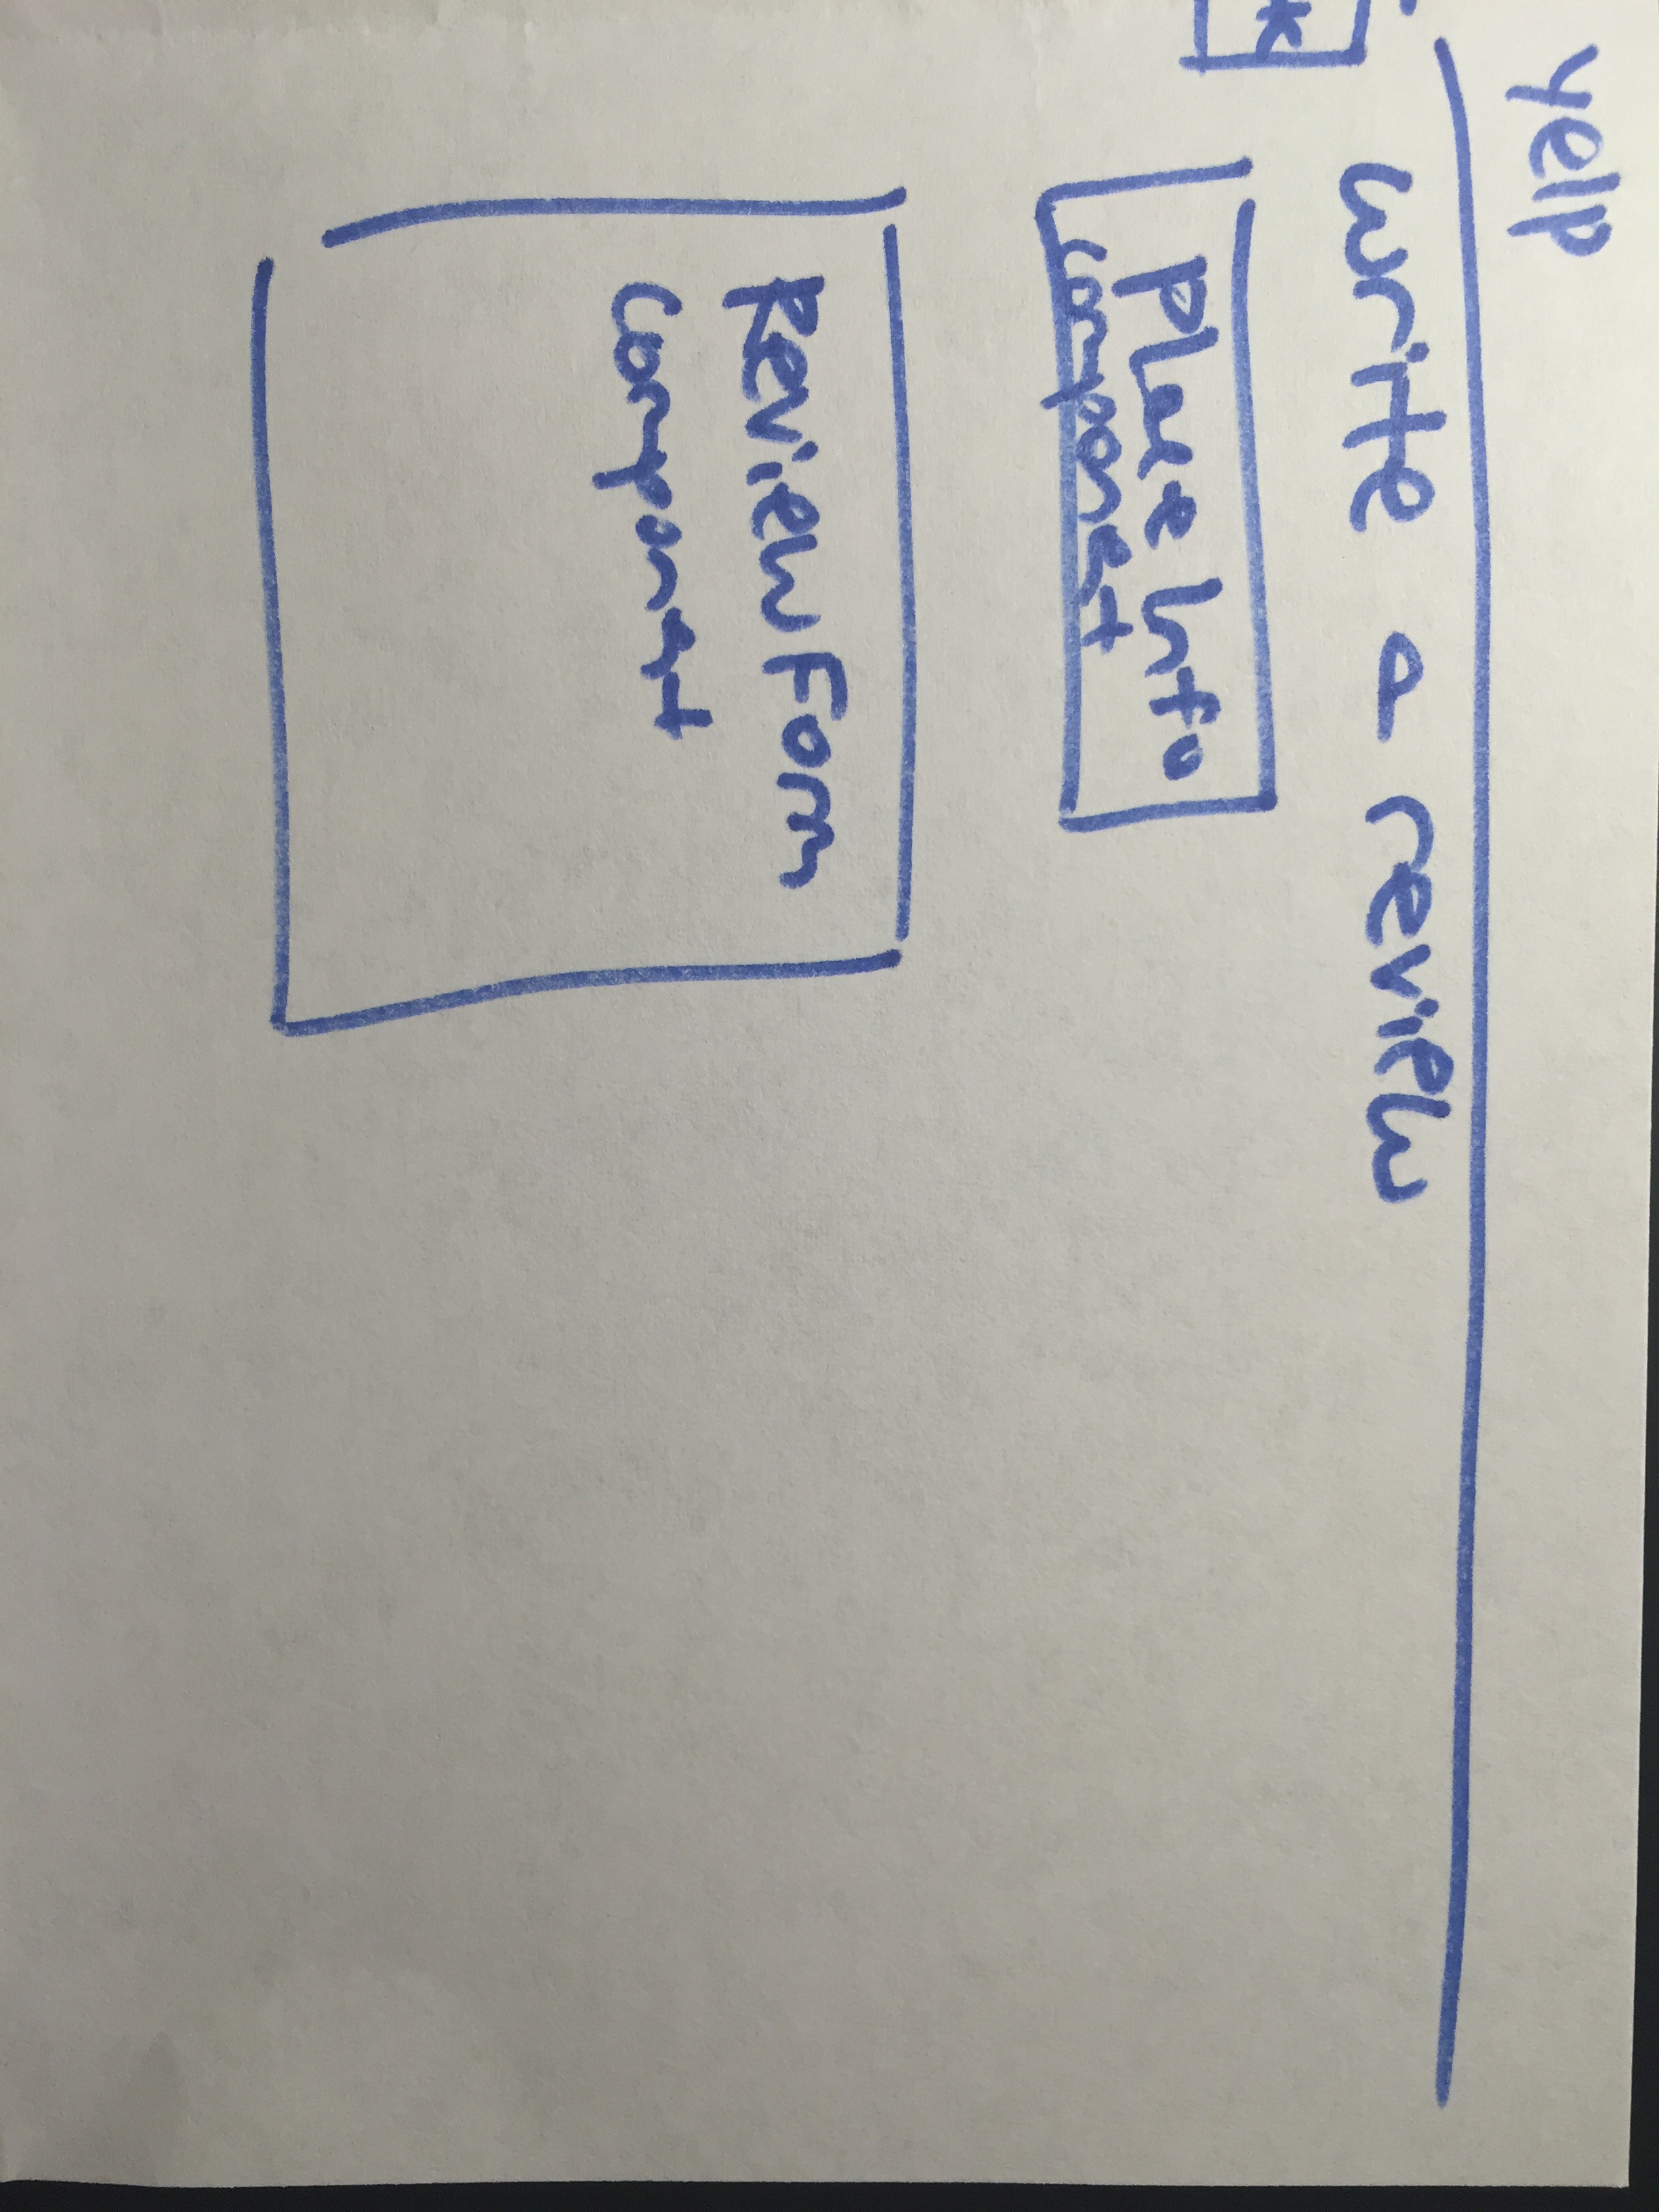 yelp
write a review
Place Info
component
Review Form
component